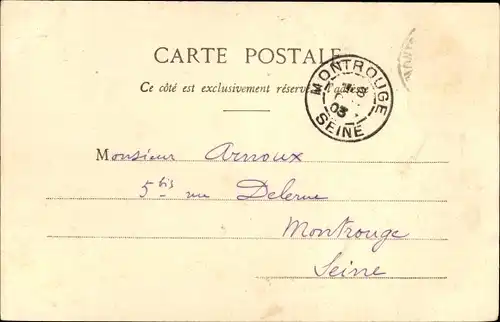 CARTE POSTALE
Ce côté est exclusivement réservé à l'adresse
MONTROUGE
03
SEINE
Monsieur Arnoux
5 bis rue Delerue
Montrouge
Seine